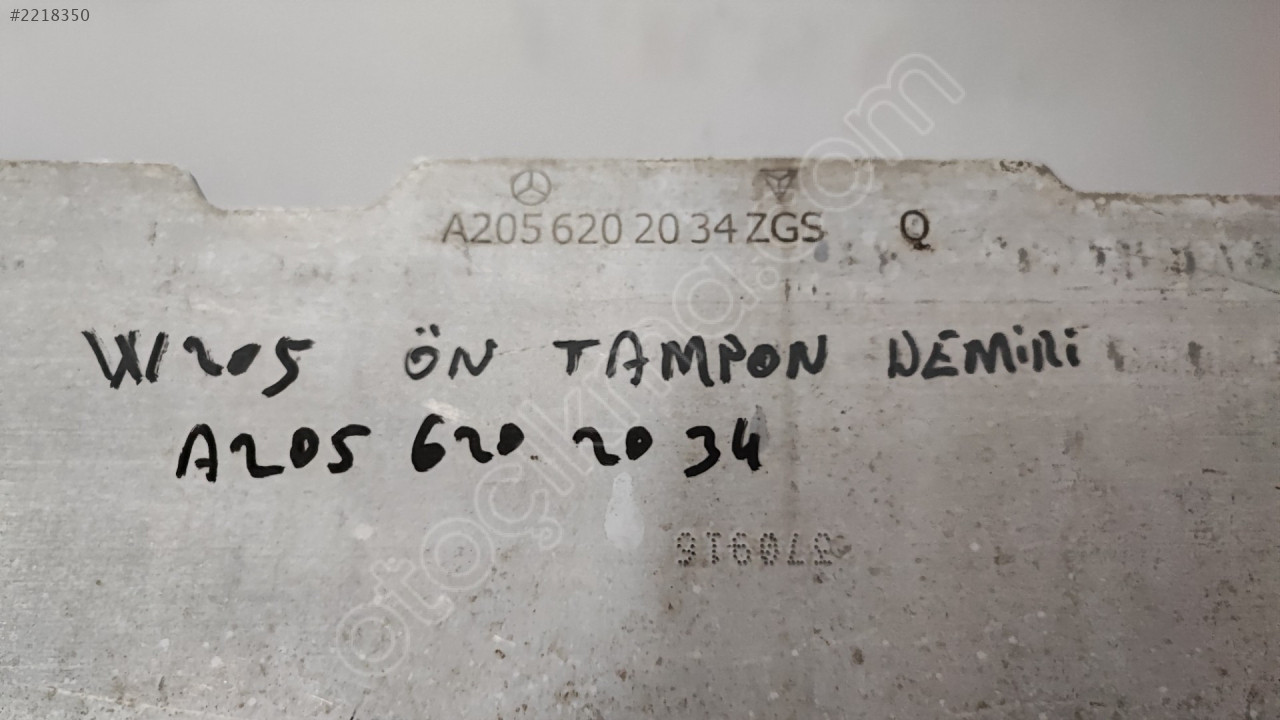 #2218350
A205 620 20 34 ZGS Q
W205 ÖN TAMPON DEMiRi
A205 620 20 34
otoçıkma.com